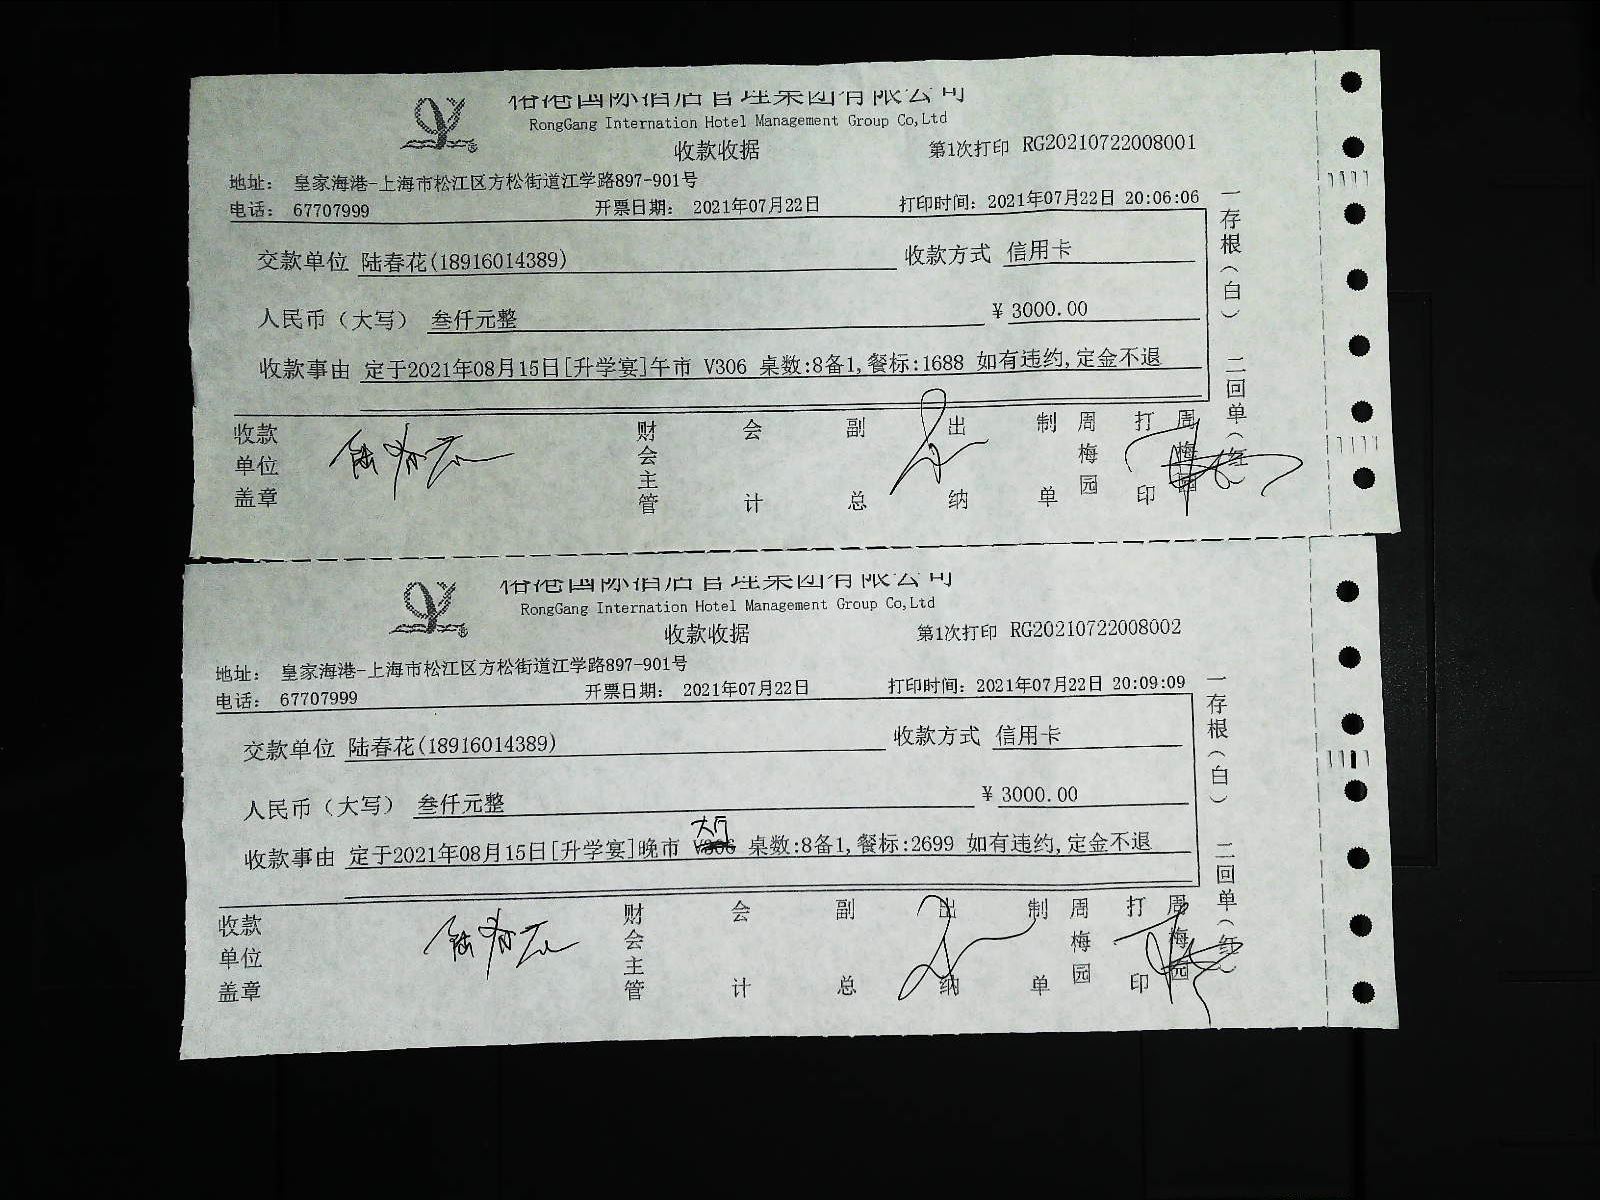 国际酒店管理集团有限公司
RongGang Internation Hotel Management Group Co,Ltd
收款收据 第1次打印 RG20210722008001
地址： 皇家海港-上海市松江区方松街道江学路897-901号
电话： 67707999 开票日期： 2021年07月22日 打印时间：2021年07月22日 20:06:06
交款单位 陆春花(18916014389) 收款方式 信用卡
人民币（大写） 叁仟元整 ¥ 3000.00
收款事由 定于2021年08月15日[升学宴]午市 V306 桌数:8备1,餐标:1688 如有违约,定金不退
收款单位盖章 陆春花 财会主管 会计 副总 出纳 制单 周梅园 打印 周梅园
一存根（白） 二回单（红）
国际酒店管理集团有限公司
RongGang Internation Hotel Management Group Co,Ltd
收款收据 第1次打印 RG20210722008002
地址： 皇家海港-上海市松江区方松街道江学路897-901号
电话： 67707999 开票日期： 2021年07月22日 打印时间：2021年07月22日 20:09:09
交款单位 陆春花(18916014389) 收款方式 信用卡
人民币（大写） 叁仟元整 ¥ 3000.00
大厅
收款事由 定于2021年08月15日[升学宴]晚市 V306 桌数:8备1,餐标:2699 如有违约,定金不退
收款单位盖章 陆春花 财会主管 会计 副总 出纳 制单 周梅园 打印 周梅园
一存根（白） 二回单（红）